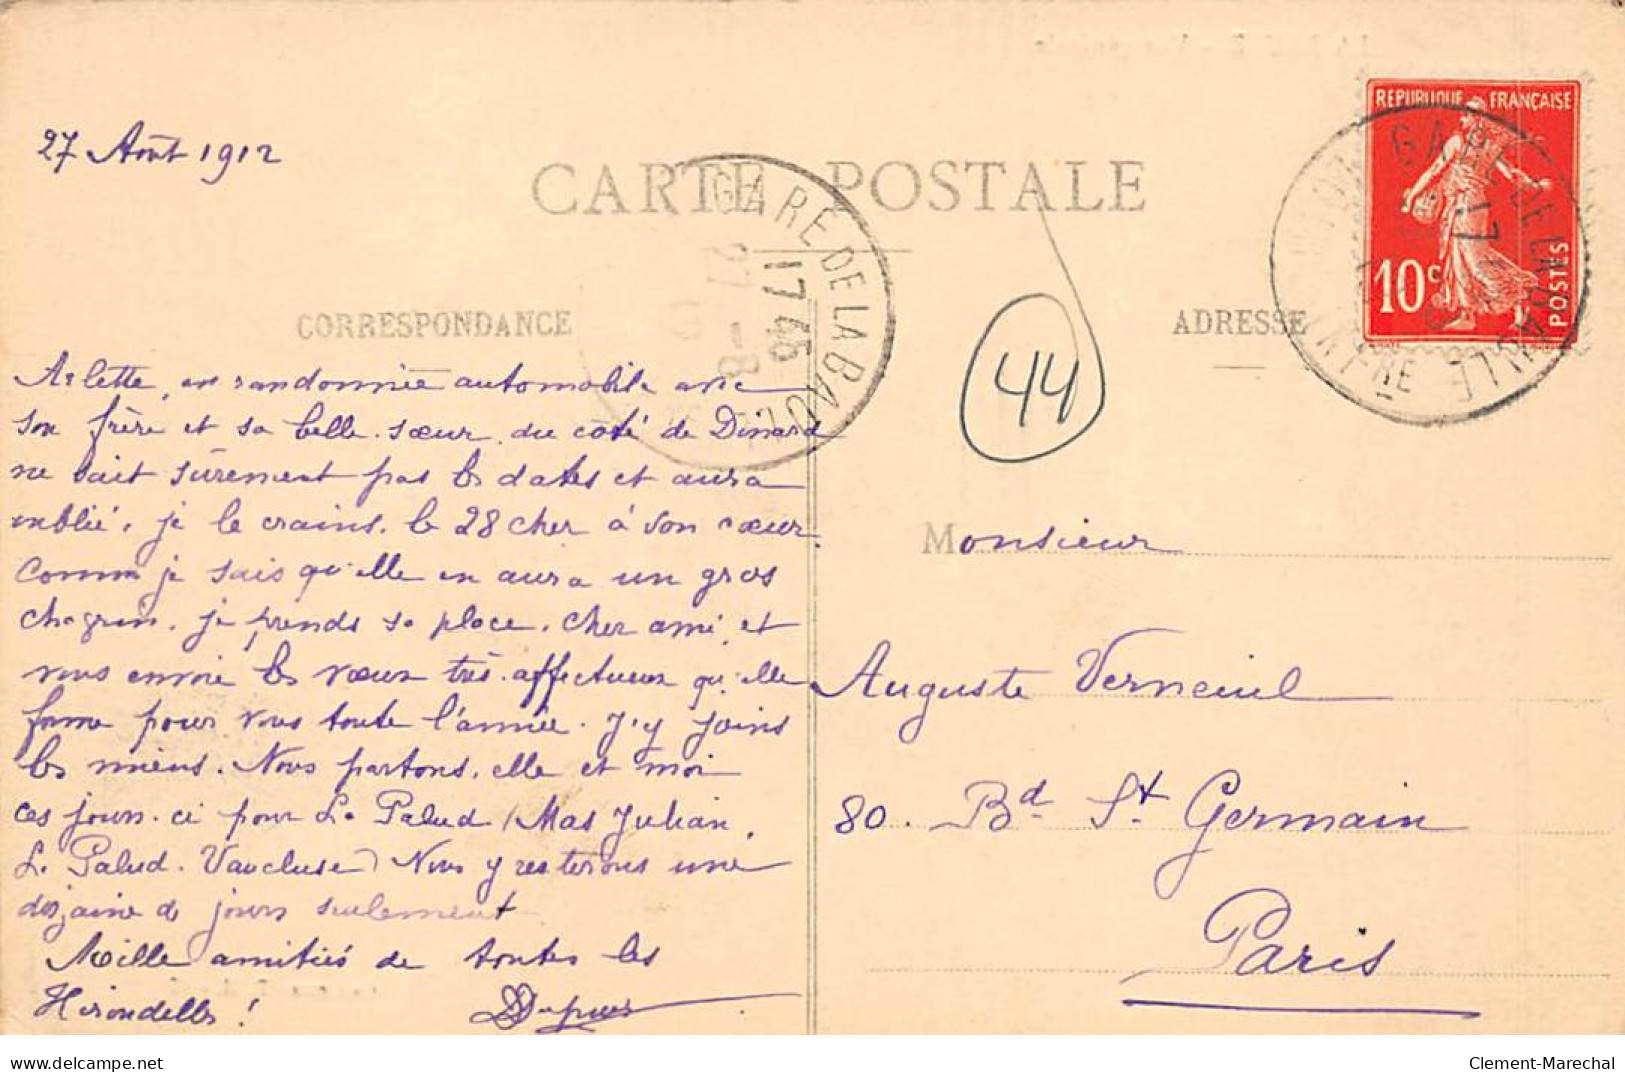 27 Août 1912
CARTE POSTALE
CORRESPONDANCE
ADRESSE
REPUBLIQUE FRANÇAISE
10c
POSTES
GARE DE LA BAULE
17 45
27 -8
44
Arlette, en randonnée automobile avec
son frère et sa belle-sœur, du côté de Dinard
ne sait sûrement pas les dates et aura
oublié, je le crains, le 28 cher à son cœur.
Comme je sais qu'elle en aura un gros
chagrin, je prends sa place, cher ami, et
vous envoie les vœux très affectueux qu'elle
forme pour vous toute l'année. J'y joins
les miens. Nous partons, elle et moi
ces jours-ci pour La Palud (Mas Julian,
La Palud. Vaucluse) Nous y resterons une
dizaine de jours seulement
Mille amitiés de toutes les
Hirondelles !
Monsieur
Auguste Verneuil
80. Bd St Germain
Paris
delcampe.net
Clement-Marechal